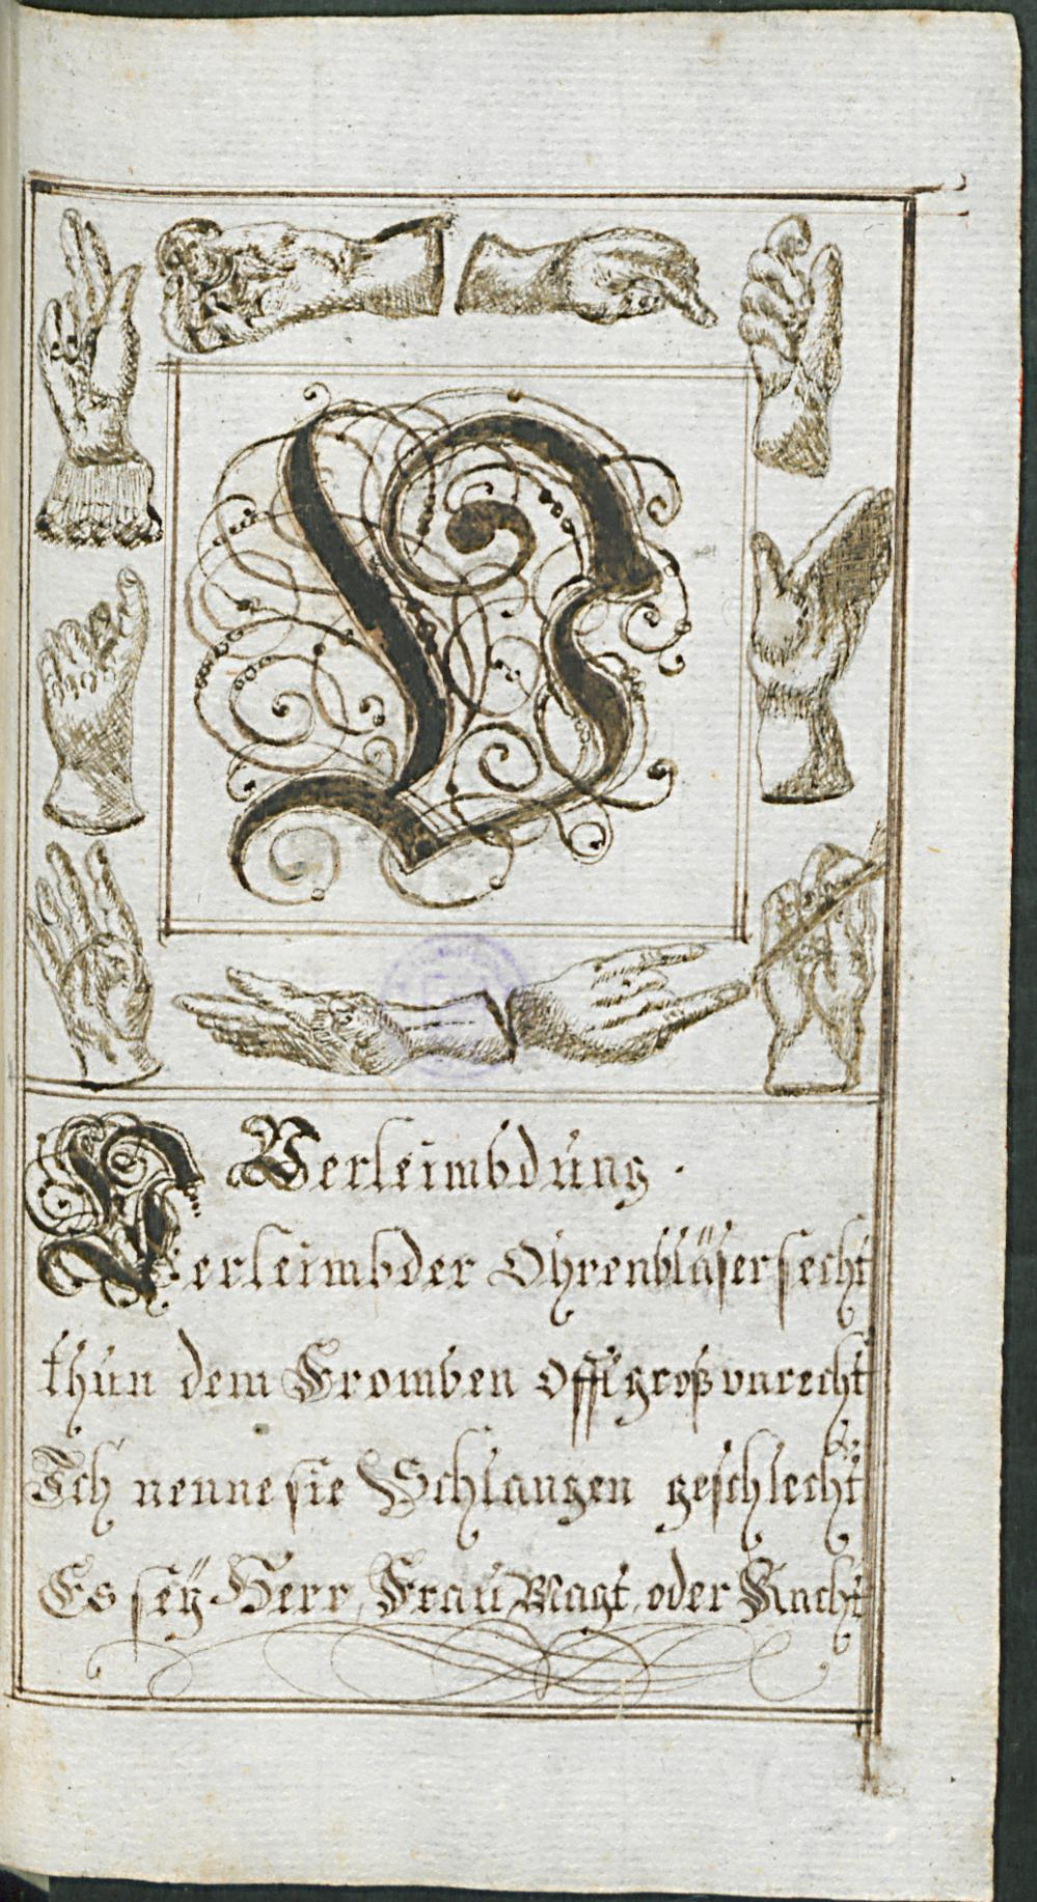 V
Verleimbdung.
Verleimbder Ohrenbläser secht
thun dem Fromben offt groß vnrecht
Ich nenne sie Schlangen geschlecht
Es sey Herr, Frau Magt oder Knecht